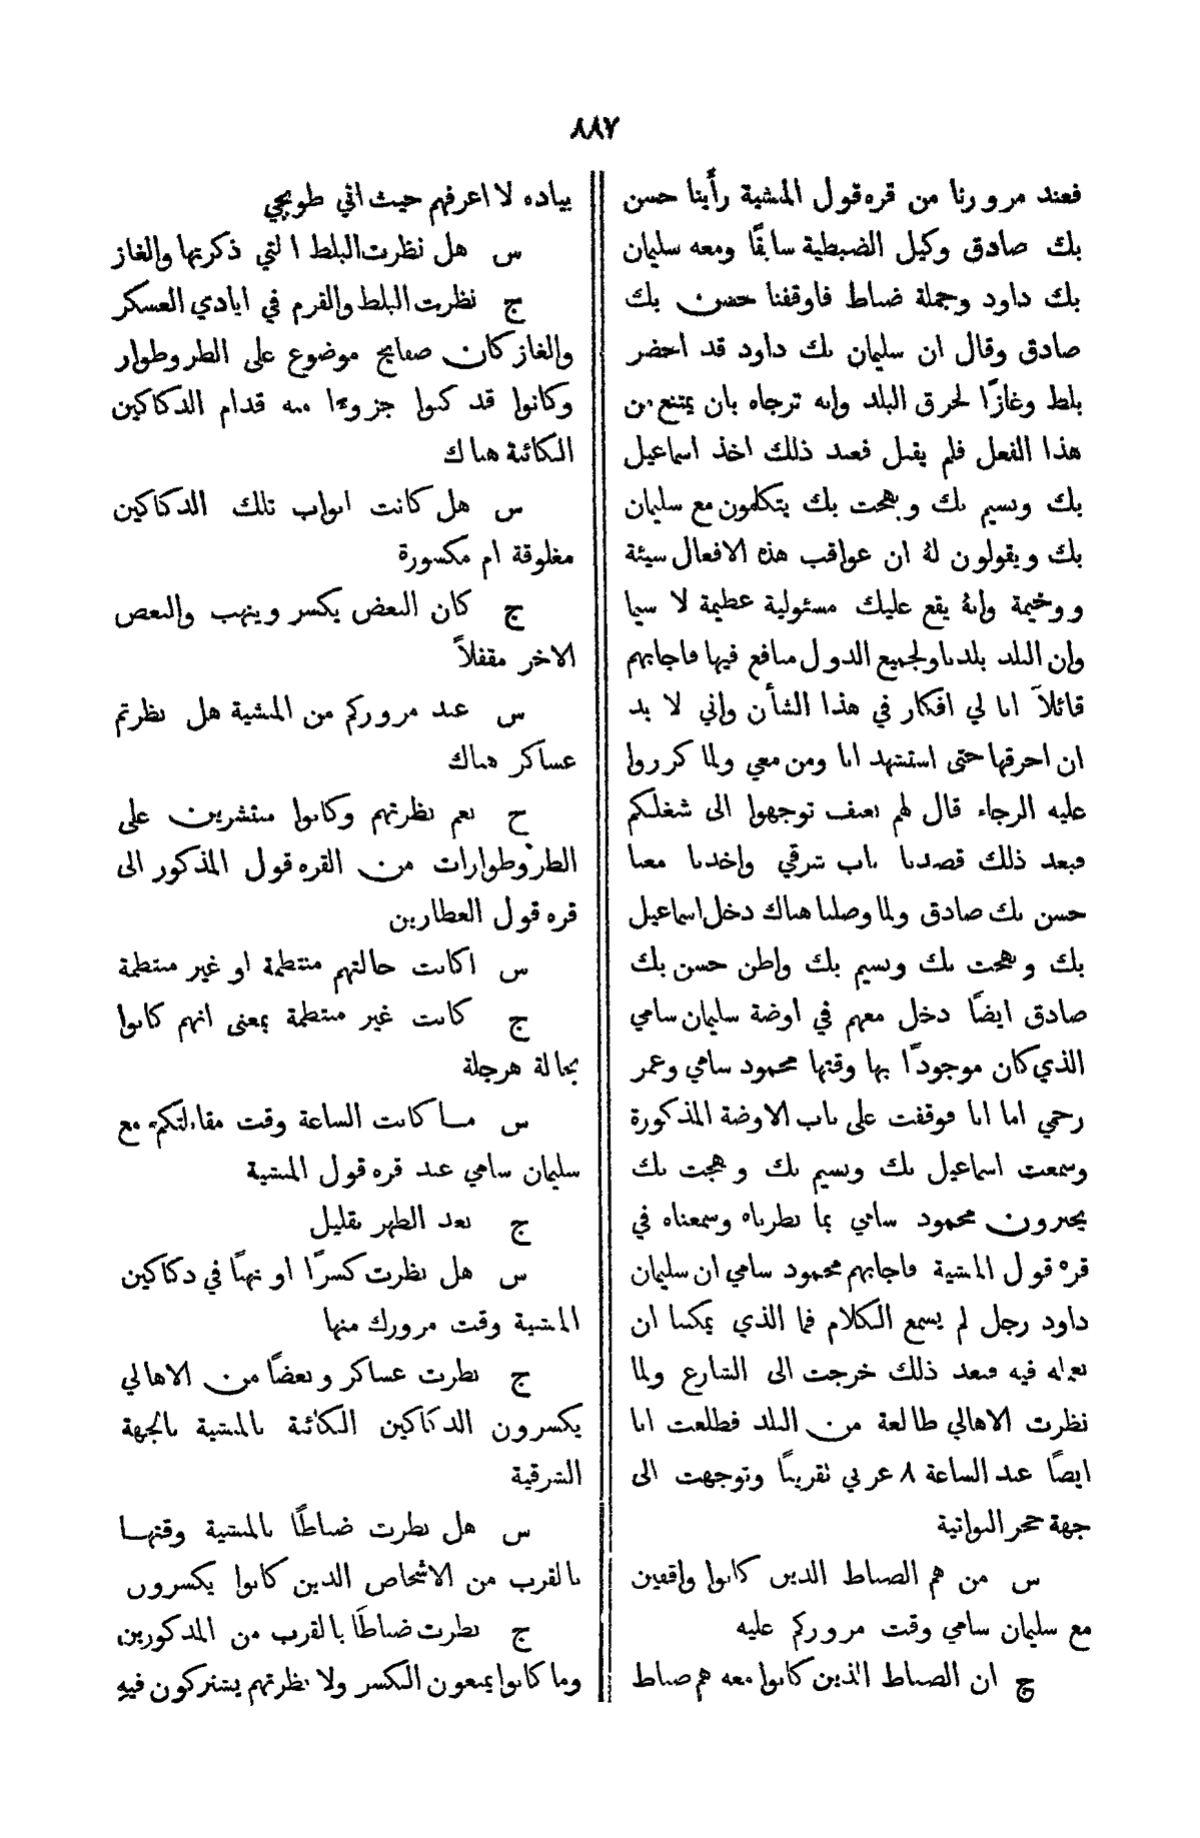 ٨٨٧
فعند مرورنا من قره قول المنشية رأينا حسن
بك صادق وكيل الضبطية سابقًا ومعه سليمان
بك داود وجملة ضباط فاوقفنا حضن بك
صادق وقال ان سليمان بك داود قد احضر
بلط وغازًا لحرق البلد وانه ترجاه بان يمتنع من
هذا الفعل فلم يقبل فعند ذلك اخذ اسماعيل
بك ونسيم بك وبهجت بك يتكلمون مع سليمان
بك ويقولون لهُ ان عواقب هذه الافعال سيئة
ووخيمة وانهُ يقع عليك مسئولية عظيمة لا سيما
وان البلد بلدنا ولجميع الدول منافع فيها فاجابهم
قائلاً انا لي افكار في هذا الشأن واني لا بد
ان احرقها حتى استشهد انا ومن معي ولما كرروا
عليه الرجاء قال لهم بعنف توجهوا الى شغلكم
فبعد ذلك قصدنا باب شرقي واخدنا معنا
حسن بك صادق ولما وصلنا هناك دخل اسماعيل
بك وبهجت بك ونسيم بك واظن حسن بك
صادق ايضًا دخل معهم في اوضة سليمان سامي
الذي كان موجودًا بها وقتها محمود سامي وعمر
رحمي اما انا فوقفت على باب الاوضة المذكورة
وسمعت اسماعيل بك ونسيم بك وبهجت بك
يخبرون محمود سامي بما نظرناه وسمعناه في
قره قول المنشية فاجابهم محمود سامي ان سليمان
داود رجل لم يسمع الكلام فما الذي يمكننا ان
نعمله فيه فبعد ذلك خرجت الى الشارع ولما
نظرت الاهالي طالعة من البلد فطلعت انا
ايضًا عند الساعة ٨ عربي تقريبًا وتوجهت الى
جهة حجر النواتية
س من هم الضباط الذين كانوا واقفين
مع سليمان سامي وقت مروركم عليه
ج ان الضباط الذين كانوا معه هم ضباط
بياده لا اعرفهم حيث اني طوبجي
س هل نظرت البلط التي ذكرتها والغاز
ج نظرت البلط والفرم في ايادي العسكر
والغاز كان صفايح موضوع على الطروطوار
وكانوا قد كبوا جزوءًا منه قدام الدكاكين
الكائنة هناك
س هل كانت ابواب تلك الدكاكين
مغلوقة ام مكسورة
ج كان البعض يكسر وينهب والبعض
الاخر مقفلاً
س عند مروركم من المنشية هل نظرتم
عساكر هناك
ج نعم نظرتهم وكانوا منتشرين على
الطروطوارات من القره قول المذكور الى
قره قول العطارين
س اكانت حالتهم منتظمة او غير منتظمة
ج كانت غير منتظمة بمعنى انهم كانوا
بحالة هرجلة
س ما كانت الساعة وقت مقابلتكم مع
سليمان سامي عند قره قول المنشية
ج بعد الظهر بقليل
س هل نظرت كسرًا او نهبًا في دكاكين
المنشية وقت مرورك منها
ج نظرت عساكر وبعضًا من الاهالي
يكسرون الدكاكين الكائنة بالمنشية بالجهة
الشرقية
س هل نظرت ضباطًا بالمنشية وقتها
بالقرب من الاشخاص الذين كانوا يكسرون
ج نظرت ضباطًا بالقرب من المذكورين
وما كانوا يمنعون الكسر ولا نظرتهم يشتركون فيهِ